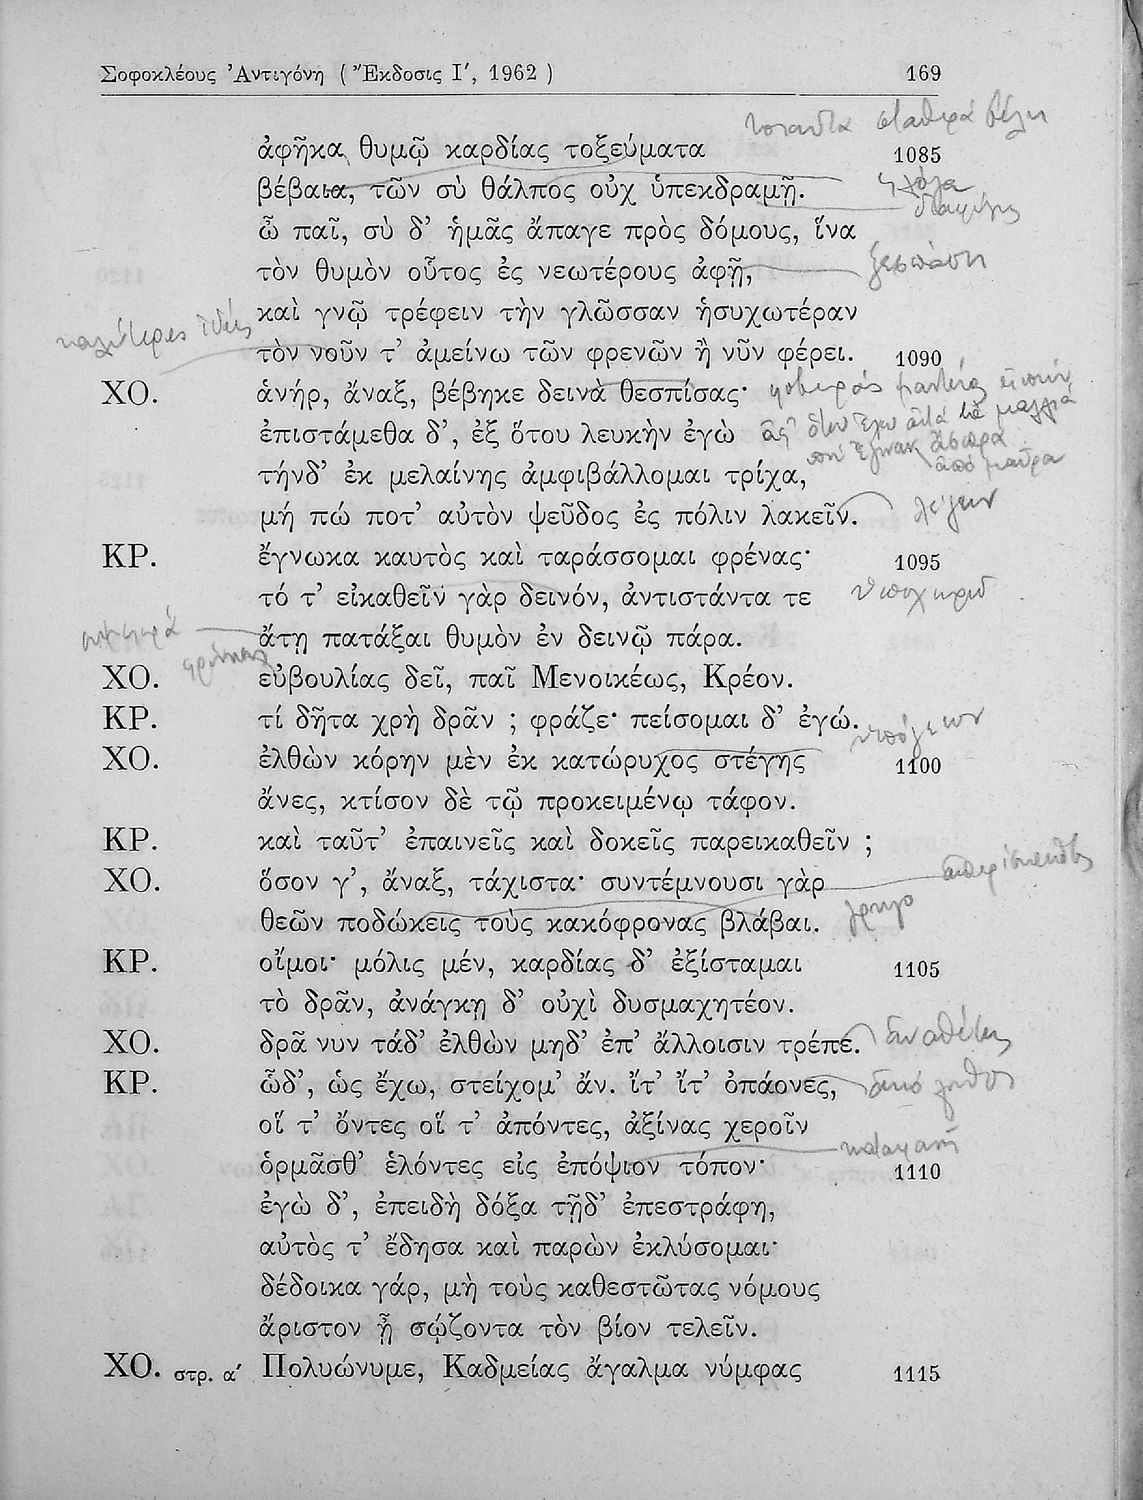 Σοφοκλέους Ἀντιγόνη ( Ἔκδοσις Ι′, 1962 ) 169
τοιαῦτα σταθερὰ βέλη
ἀφῆκα θυμῷ καρδίας τοξεύματα 1085
βέβαια, τῶν σὺ θάλπος οὐχ ὑπεκδραμῇ. φλόγα
ὦ παῖ, σὺ δ’ ἡμᾶς ἄπαγε πρὸς δόμους, ἵνα
τὸν θυμὸν οὗτος ἐς νεωτέρους ἀφῇ, ξεσπάση
καὶ γνῷ τρέφειν τὴν γλῶσσαν ἡσυχωτέραν
τὸν νοῦν τ’ ἀμείνω τῶν φρενῶν ἢ νῦν φέρει. 1090
ΧΟ. ἁνήρ, ἄναξ, βέβηκε δεινὰ θεσπίσας·
ἐπιστάμεθα δ’, ἐξ ὅτου λευκὴν ἐγὼ
τήνδ’ ἐκ μελαίνης ἀμφιβάλλομαι τρίχα, ἀπὸ μαῦρα
μή πώ ποτ’ αὐτὸν ψεῦδος ἐς πόλιν λακεῖν. λέγειν
ΚΡ. ἔγνωκα καυτὸς καὶ ταράσσομαι φρένας· 1095
τό τ’ εἰκαθεῖν γὰρ δεινόν, ἀντιστάντα τε
ἄτῃ πατάξαι θυμὸν ἐν δεινῷ πάρα.
ΧΟ. εὐβουλίας δεῖ, παῖ Μενοικέως, Κρέον.
ΚΡ. τί δῆτα χρὴ δρᾶν ; φράζε· πείσομαι δ’ ἐγώ.
ΧΟ. ἐλθὼν κόρην μὲν ἐκ κατώρυχος στέγης 1100
ἄνες, κτίσον δὲ τῷ προκειμένῳ τάφον.
ΚΡ. καὶ ταῦτ’ ἐπαινεῖς καὶ δοκεῖς παρεικαθεῖν ;
ΧΟ. ὅσον γ’, ἄναξ, τάχιστα· συντέμνουσι γὰρ
θεῶν ποδώκεις τοὺς κακόφρονας βλάβαι.
ΚΡ. οἴμοι· μόλις μέν, καρδίας δ’ ἐξίσταμαι 1105
τὸ δρᾶν, ἀνάγκῃ δ’ οὐχὶ δυσμαχητέον.
ΧΟ. δρᾶ νυν τάδ’ ἐλθὼν μηδ’ ἐπ’ ἄλλοισιν τρέπε.
ΚΡ. ὧδ’, ὡς ἔχω, στείχομ’ ἄν. ἴτ’ ἴτ’ ὀπάονες,
οἵ τ’ ὄντες οἵ τ’ ἀπόντες, ἀξίνας χεροῖν
ὁρμᾶσθ’ ἑλόντες εἰς ἐπόψιον τόπον· 1110
ἐγὼ δ’, ἐπειδὴ δόξα τῇδ’ ἐπεστράφη,
αὐτὸς τ’ ἔδησα καὶ παρὼν ἐκλύσομαι·
δέδοικα γάρ, μὴ τοὺς καθεστῶτας νόμους
ἄριστον ᾖ σῴζοντα τὸν βίον τελεῖν.
ΧΟ. στρ. α′ Πολυώνυμε, Καδμείας ἄγαλμα νύμφας 1115